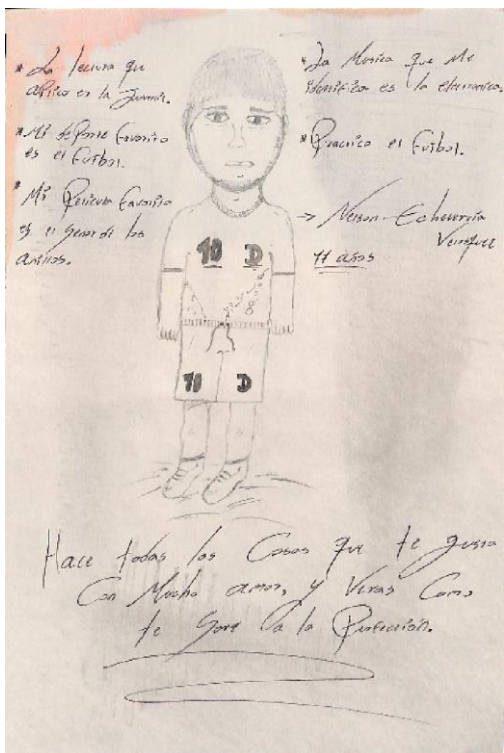 * La lectura que
aplico es la Juvenil.
* Mi deporte Favorito
es el Futbol.
* Mi Pelicula Favorita
es el Señor de los
anillos.
* La Musica que Me
identifica es la electronica.
* Practico el Futbol.
→ Nelson Echeverria
11 años
10 D
10 D
Hace todas las Cosas que te gusta
Con Mucho amor, y Veras Como
te Sale a la Perfección.